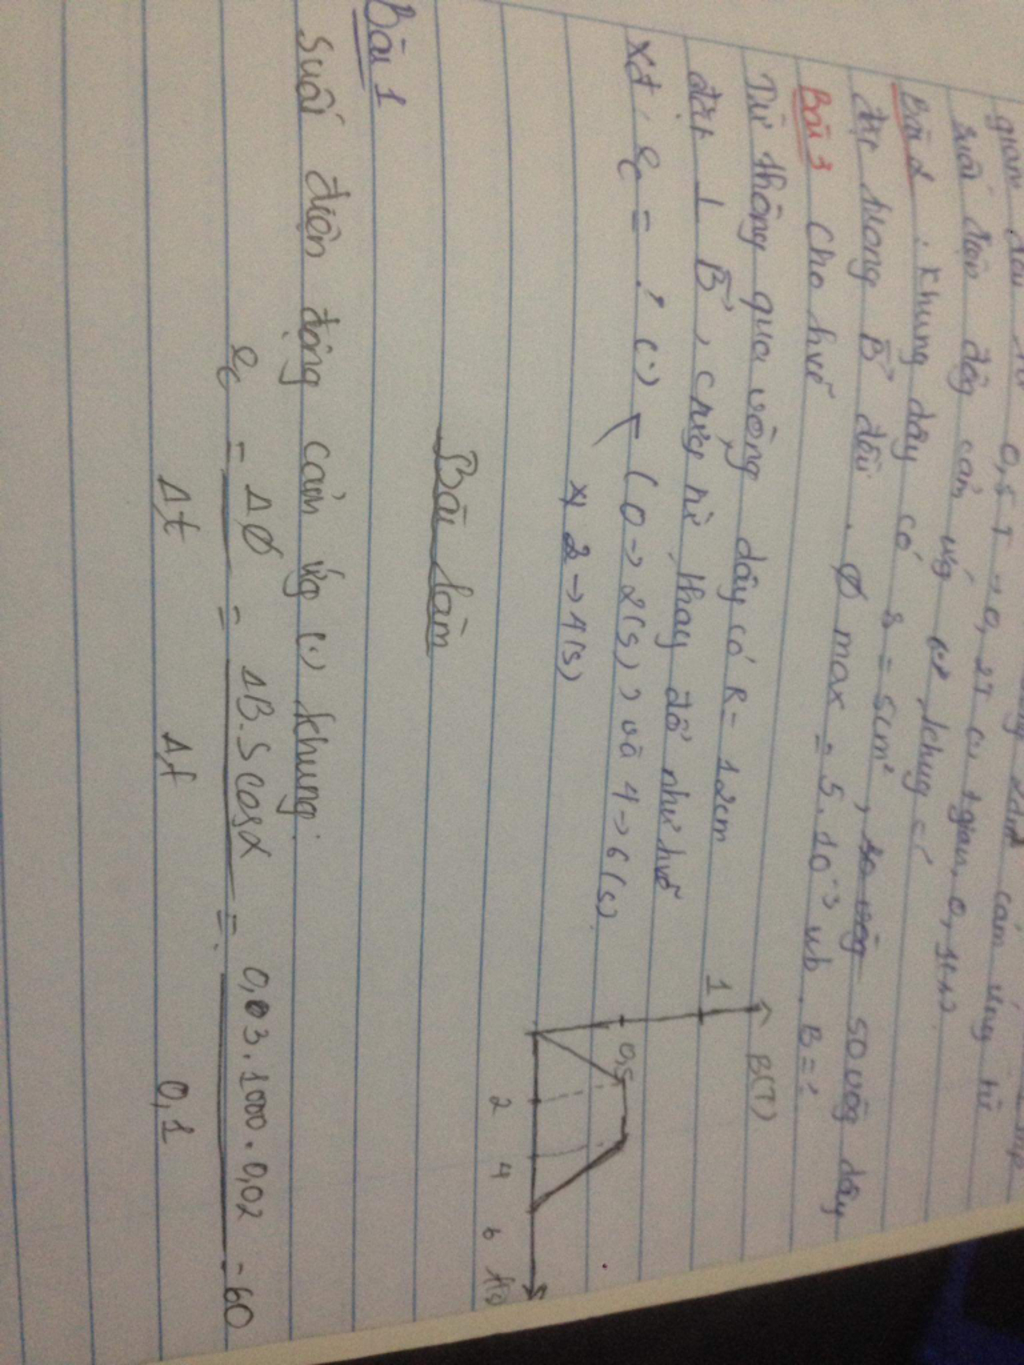 0,5T → 0,2T
suất điện động cảm ứng khung = ?
Bài 2 . Khung dây có s = 5cm² , 50 vòng dây
đặt trong B⃗ đều . Ø max = 5.10⁻³ wb . B = ?
Bài 3 Cho hvẽ
Từ thông qua vòng dây có R = 12cm
đặt ⊥ B⃗ , cứng từ thay đổi như hvẽ
xđ . ec = ? (.) (0 → 2(s)) và 4 → 6(s)
x) 2 → 4(s)
B(T)
1
0,5
2 4 6 t(s)
Bài làm
Bài 1
Suất điện động cảm ứg (.) khung:
ec = ΔØ / Δt = ΔB.S cosα / Δt = 0,03.1000.0,02 / 0,1 = 60